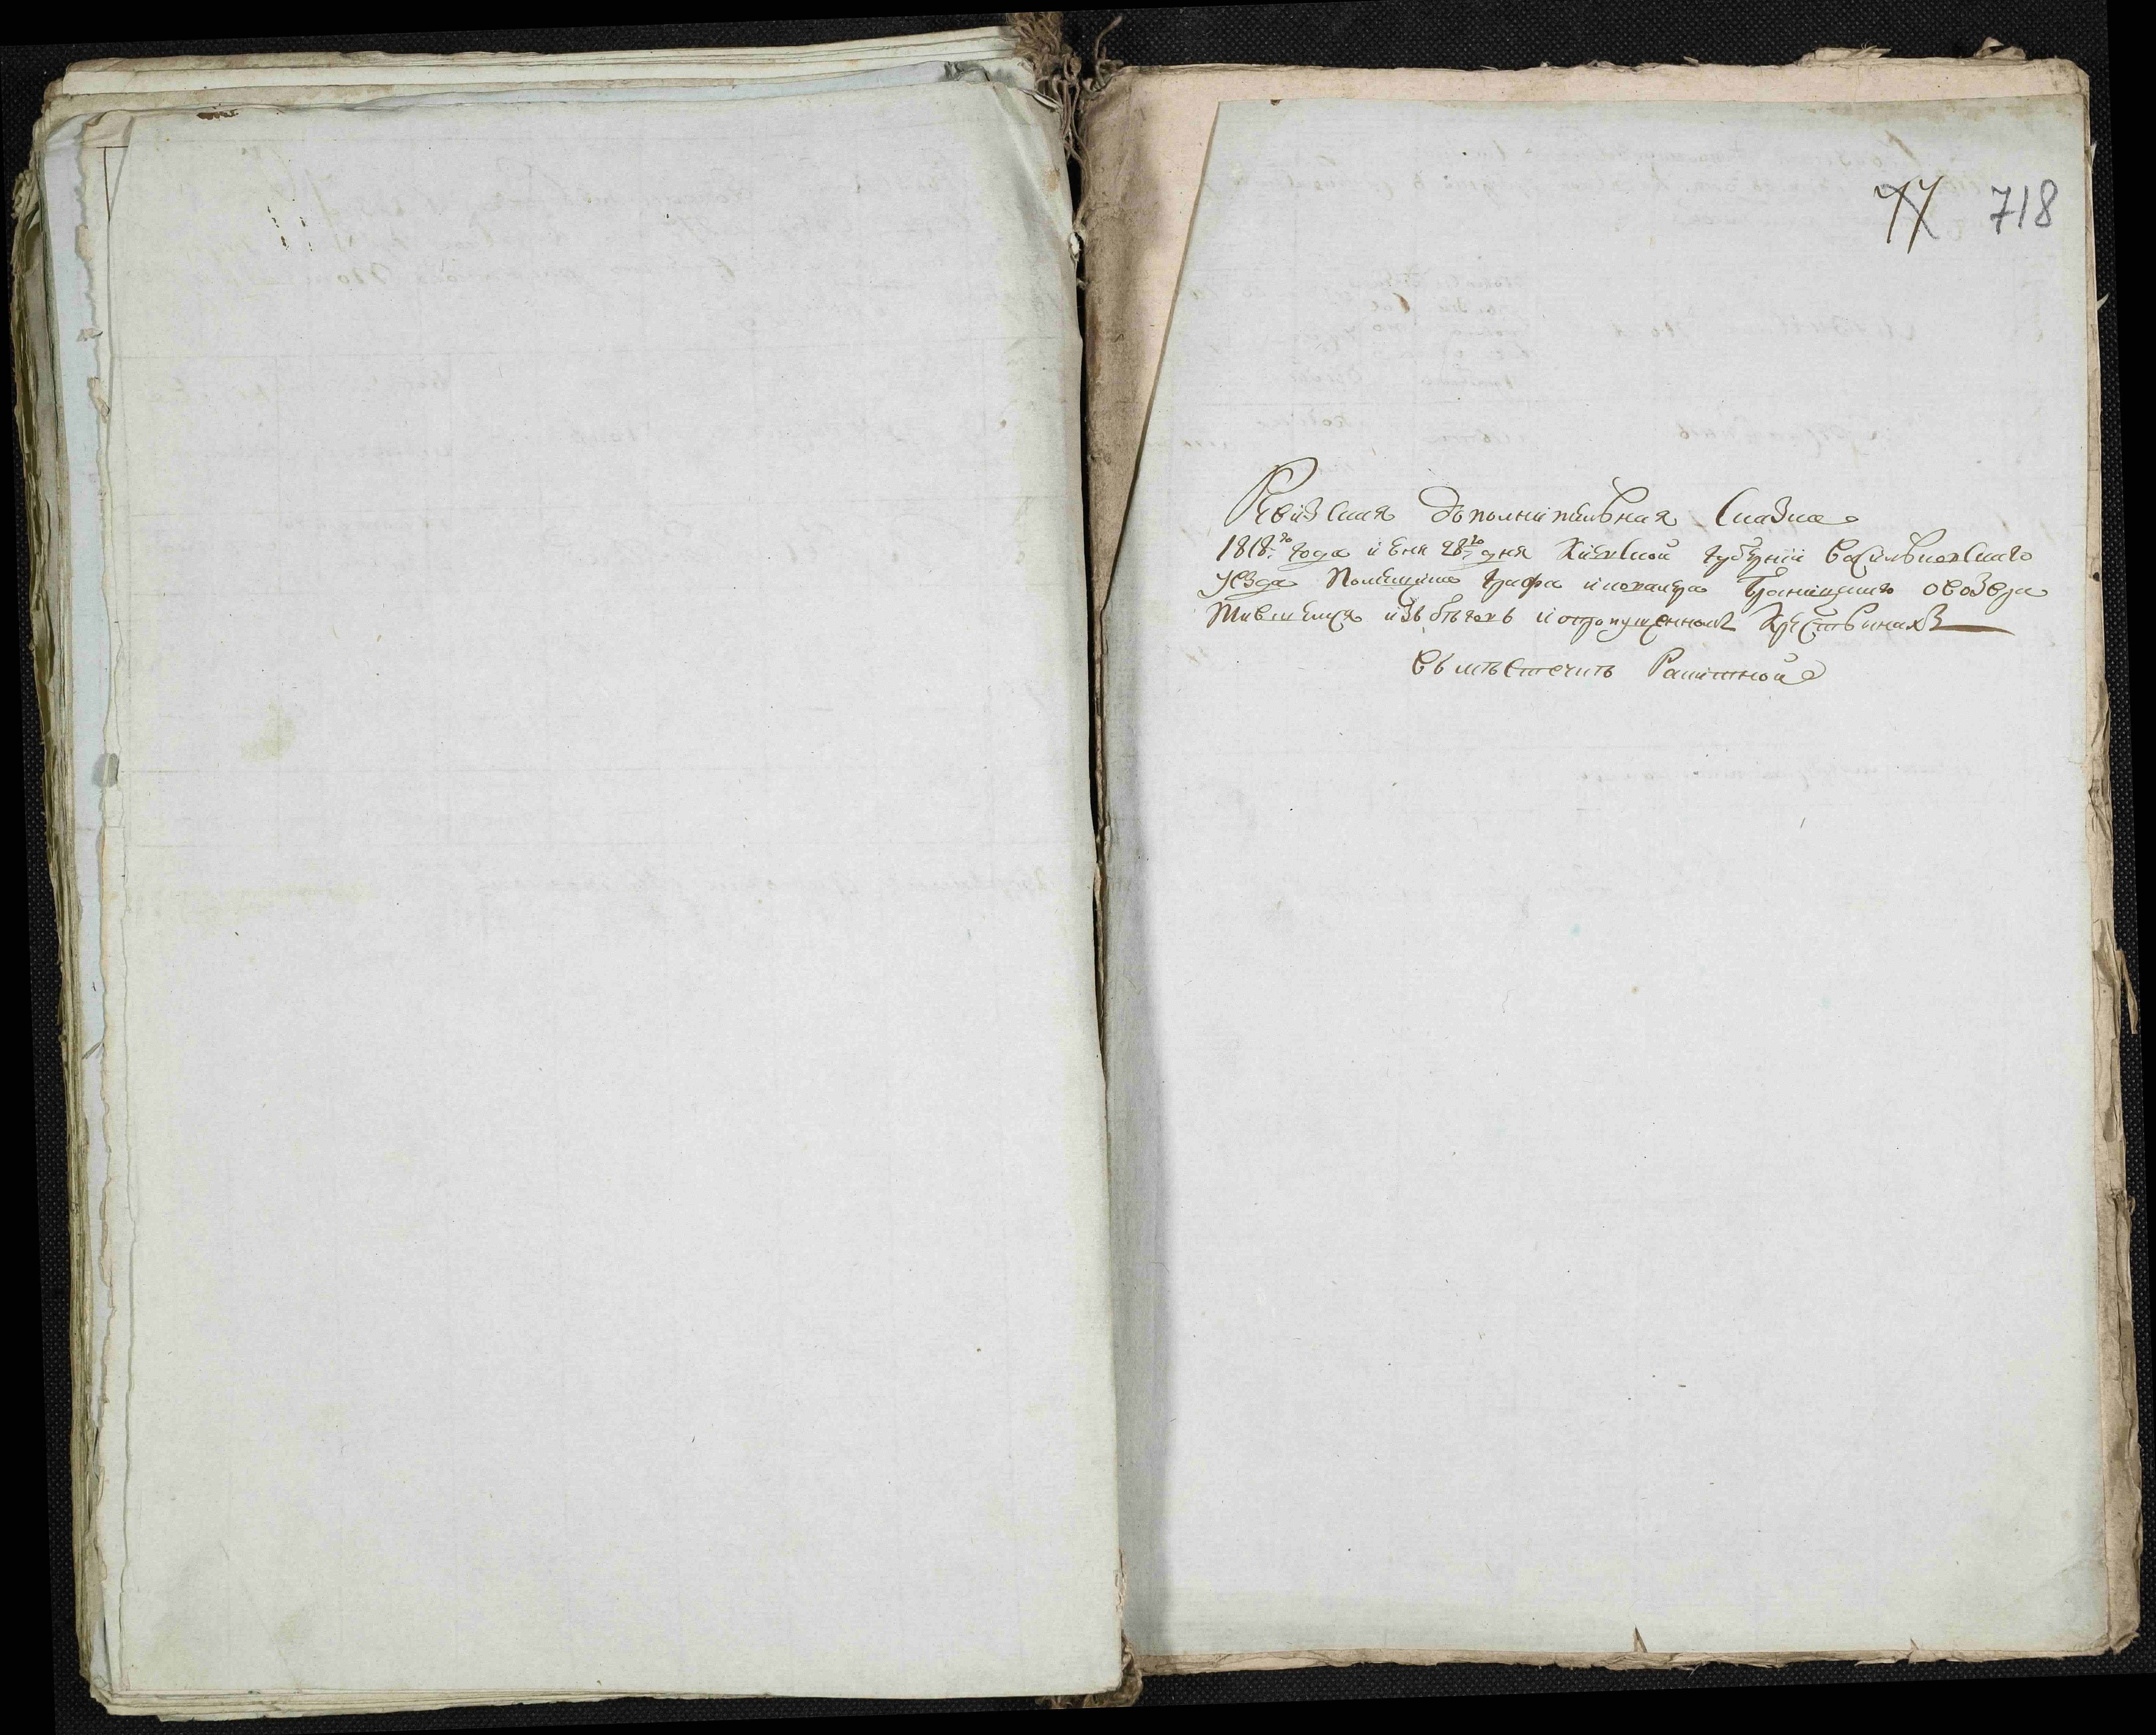 77 718
Ревизская дополнительная Сказка
1818го года июня 28го дня Киевской губернии Васильковского
уезда Помещика графа Браницкого о возвра
тившихся изъ беговъ и о пропущенномъ Крестьянахъ
въ мѣстечкѣ Ракитной